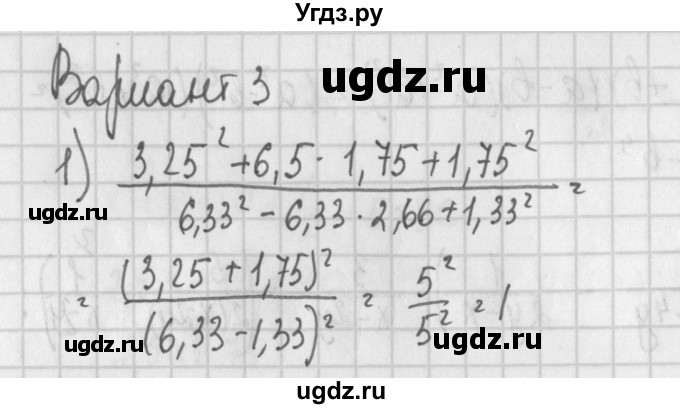 Угдз.ру
Вариант 3
ugdz.ru
1) (3,25² + 6,5 · 1,75 + 1,75²) / (6,33² − 6,33 · 2,66 + 1,33²) =
ugdz.ru
= (3,25 + 1,75)² / (6,33 − 1,33)² = 5² / 5² = 1
ugdz.ru
ugdz.ru
ugdz.ru